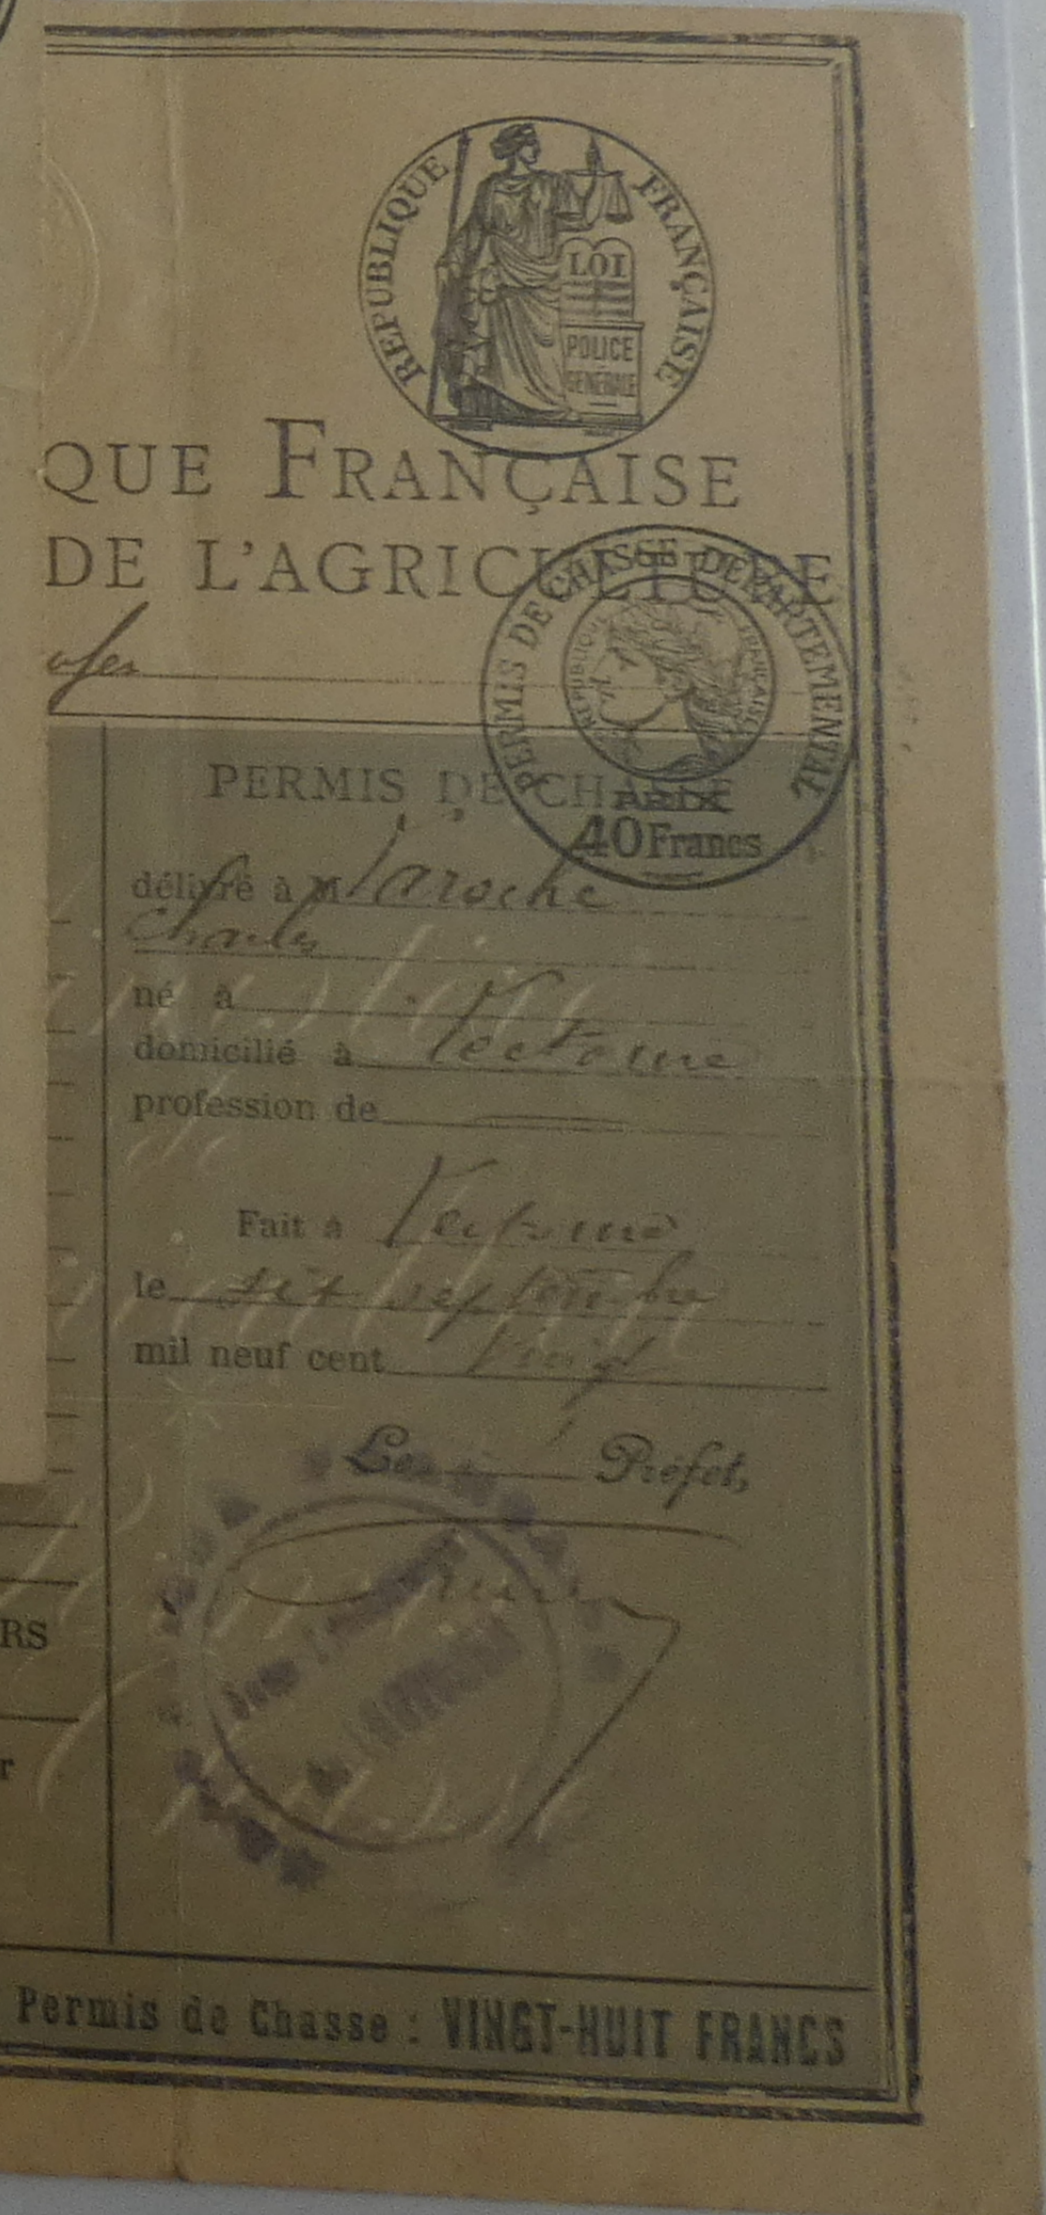 RÉPUBLIQUE FRANÇAISE
LOI
POLICE
GÉNÉRALE
QUE FRANÇAISE
DE L'AGRICULTURE
PERMIS DE CHASSE DÉPARTEMENTAL
RÉPUBLIQUE FRANÇAISE
PRIX
40 Francs
PERMIS DE CHASSE
délivré à M Laroche
Charles
né à
domicilié à Lectoure
profession de
Fait à Lectoure
le sept septembre
mil neuf cent vingt
Le Préfet,
RS
r
Permis de Chasse : VINGT-HUIT FRANCS